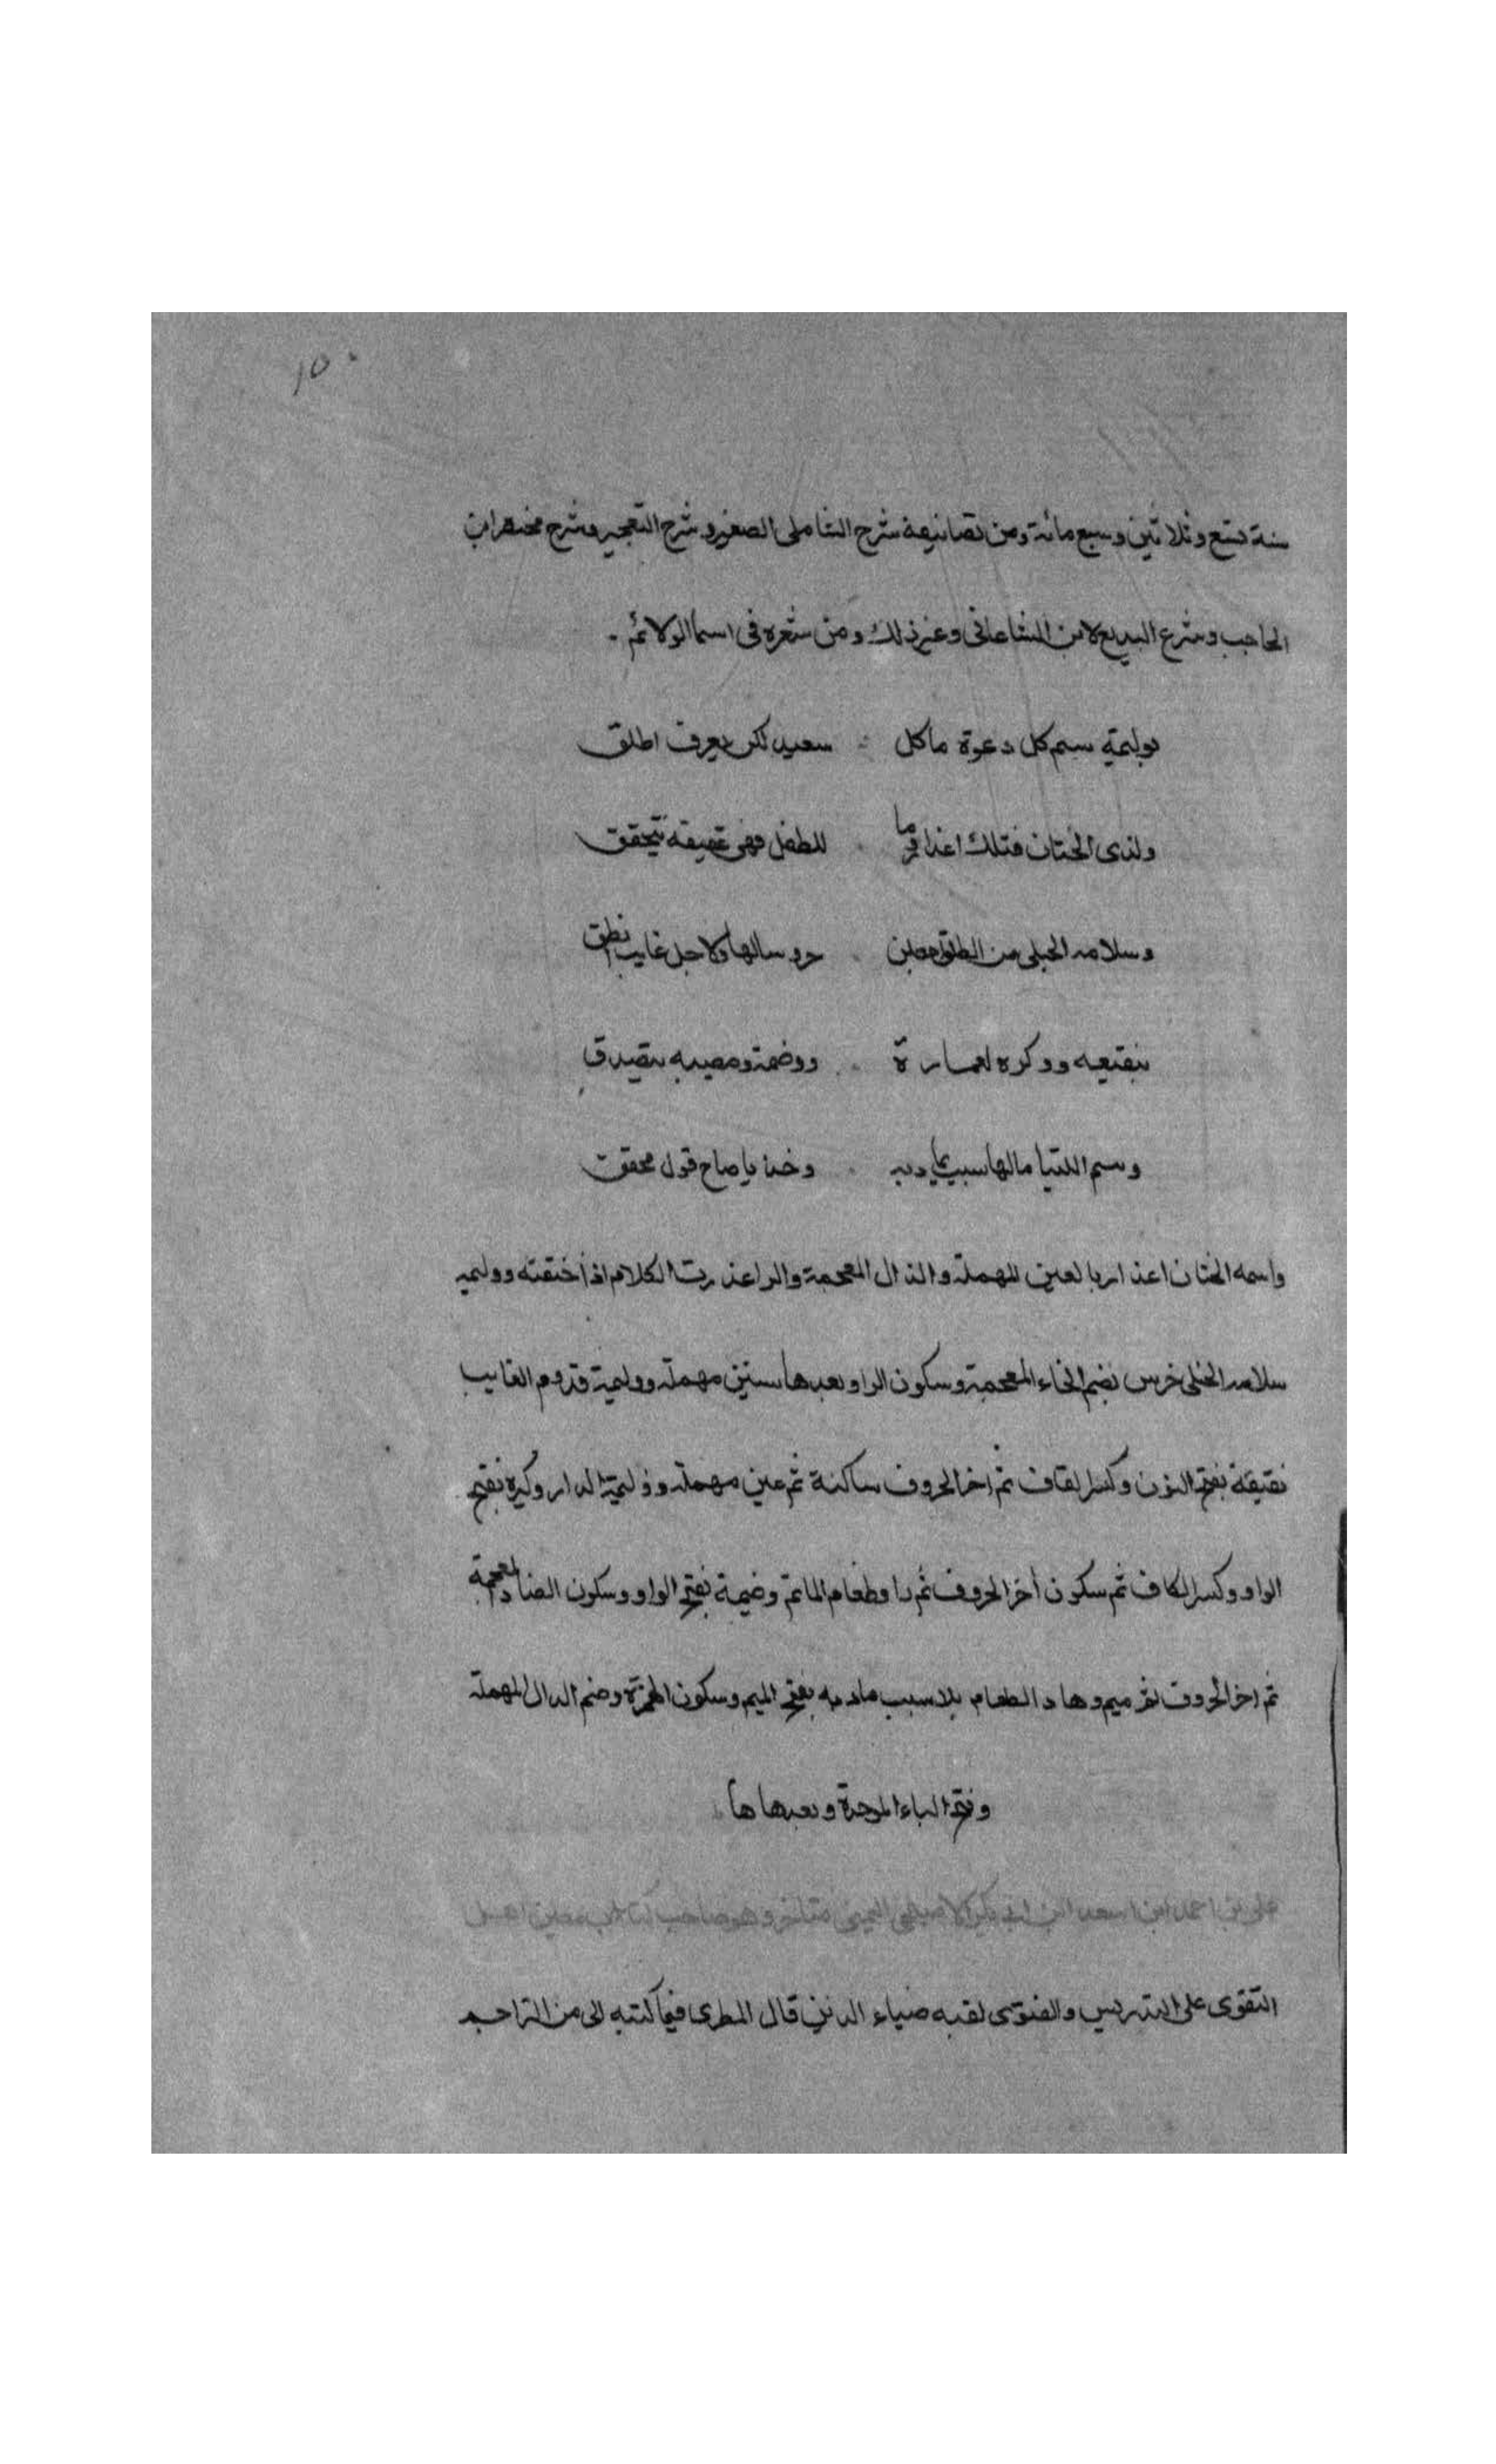 ١٥٠
سنة تسع وثلاثين وسبع مائة ومن تصانيفه شرح الشامل الصغير وشرح التعجيز وشرح مختصر ابن
الحاجب وشرع البديع لابن الساعاتى وغير ذلك ومن شعره فى اسما الولائم
بوليمة سم كل دعوة ماكل سعيد لكن يعرف اطلق
ولذى الختان فتلك اعذار وما للطفل فهى عقيقة تتحقق
وسلامه الحبلى من الطلق ولاجل غايب انطق
بنقيعه ووكره لعمارة ووضمة ومصيبه بتصدق
وسم اللتيا مالها سبب وخذ يا صاح قول محقق
واسمه الختان اعذار بالعين المهملة والذال المعجمة والراء عذرت الكلام اذا ختنته ووليمه
سلامه الحبلى خرس بضم الخاء المعجمة وسكون الرا وبعدها سنين مهملة ووليمة قدوم الغايب
نقيقة بفتح النون وكسر القاف ثم اخر الحروف ساكنة ثم عين مهملة ووليمة الدار وكيره بفتح
الواو وكسر الكاف ثم سكون أخر الحروف ثم را وطعام الماتم وضيمة بفتح الواو وسكون الضاد المعجمة
ثم اخر الحروف ثم ميم وها والطعام بلا سبب مادبه بفتح الميم وسكون الهمزة وضم الدال المهملة
وفتح الباء الموحدة وبعدها ها
على بن احمد ابن اسعد ابن ابى بكر الاصبحى اليمنى متاخر وهو صاحب كتاب معين اهل
التقوى على التدريس والفتوى لقبه ضياء الدين قال المطرى فيما كتبه الى من التراجم